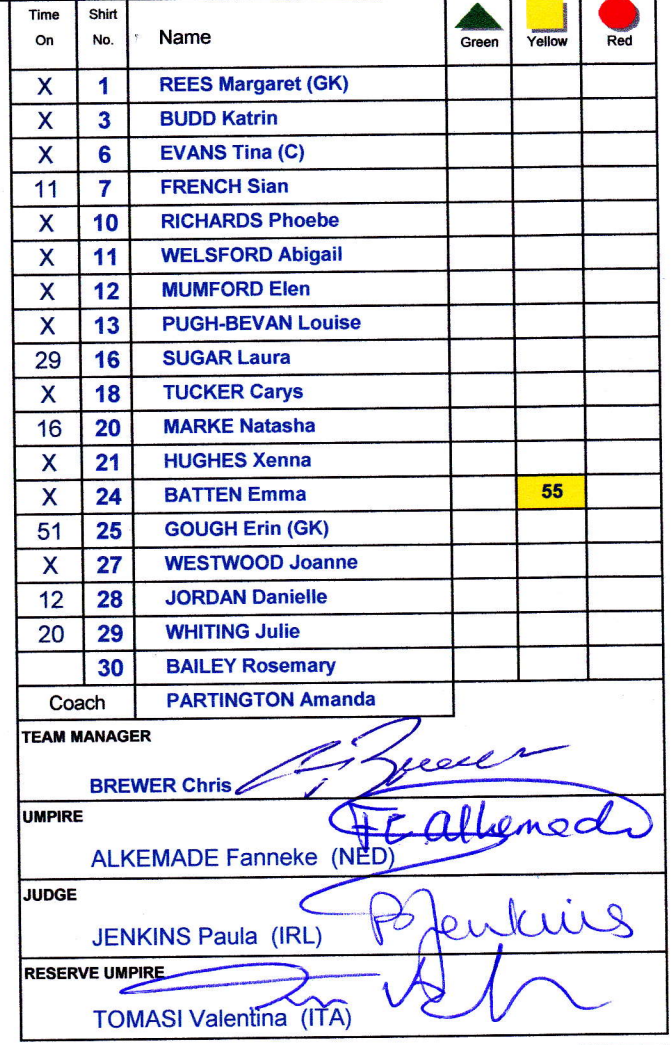 Time On Shirt No. Name Green Yellow Red
X 1 REES Margaret (GK)
X 3 BUDD Katrin
X 6 EVANS Tina (C)
11 7 FRENCH Sian
X 10 RICHARDS Phoebe
X 11 WELSFORD Abigail
X 12 MUMFORD Elen
X 13 PUGH-BEVAN Louise
29 16 SUGAR Laura
X 18 TUCKER Carys
16 20 MARKE Natasha
X 21 HUGHES Xenna
X 24 BATTEN Emma 55
51 25 GOUGH Erin (GK)
X 27 WESTWOOD Joanne
12 28 JORDAN Danielle
20 29 WHITING Julie
30 BAILEY Rosemary
Coach PARTINGTON Amanda
TEAM MANAGER
BREWER Chris
UMPIRE
F C Alkemade
ALKEMADE Fanneke (NED)
JUDGE
P Jenkins
JENKINS Paula (IRL)
RESERVE UMPIRE
TOMASI Valentina (ITA)